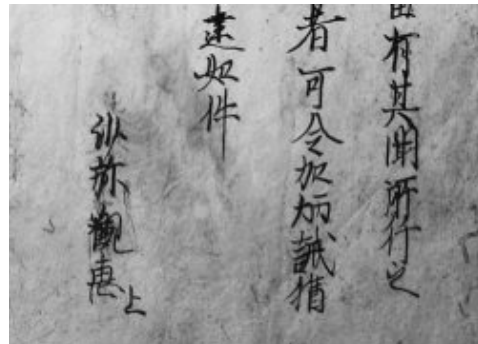 由有其聞所行之
者可令加炳誡猶
達如件
沙弥觀恵上